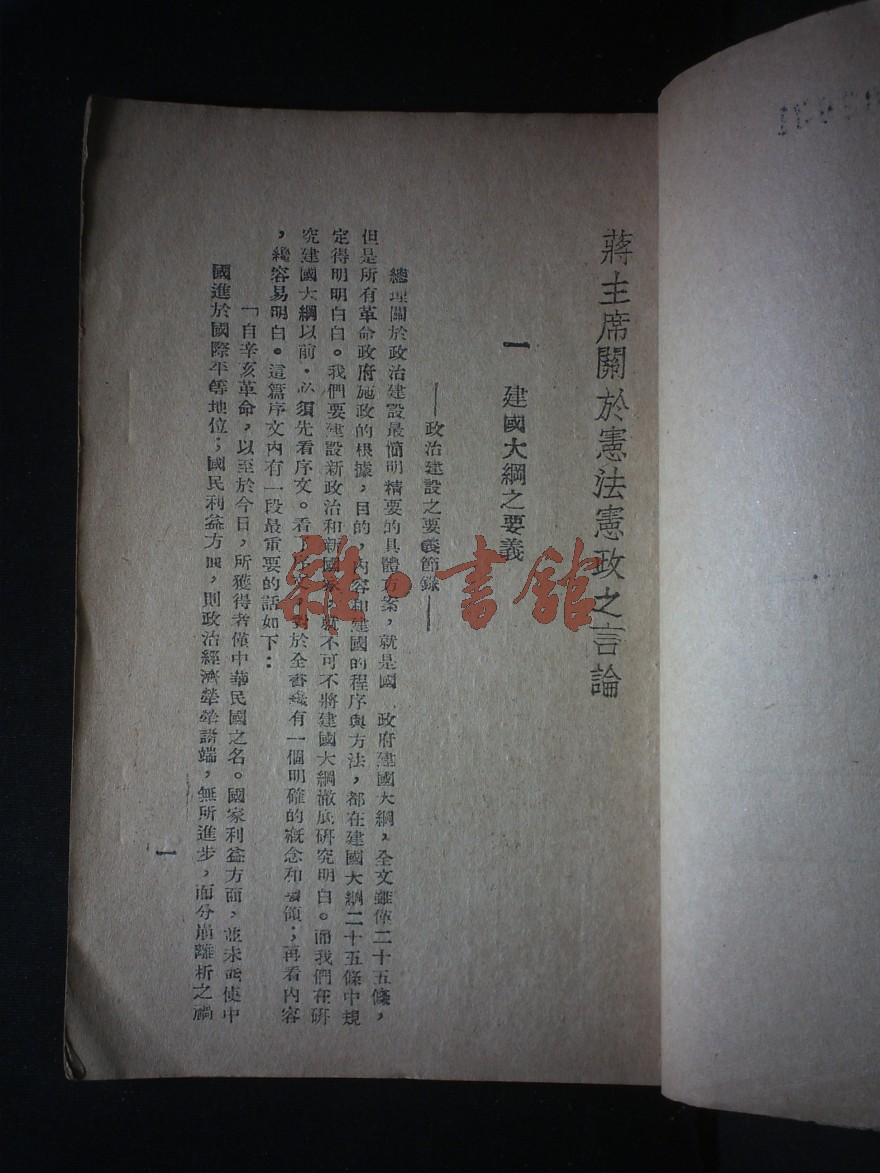 蔣主席關於憲法憲政之言論
一 建國大綱之要義
——政治建設之要義節錄——
總理關於政治建設最簡明精要的具體方案，就是國 政府建國大綱，全文雖僅二十五條，
但是所有革命政府施政的根據，目的，內容和建國的程序與方法，都在建國大綱二十五條中規
定得明明白白。我們要建設新政治和新國家，就不可不將建國大綱澈底研究明白。而我們在研
究建國大綱以前，必須先看序文。看了序文， 對於全書纔有一個明確的概念和 領；再看內容
，纔容易明白。這篇序文內有一段最重要的話如下：
「自辛亥革命，以至於今日，所獲得者僅中華民國之名。國家利益方面，並未能使中
國進於國際平等地位；國民利益方面，則政治經濟犖犖諸端，無所進步，而分崩離析之禍
一
雜·書館